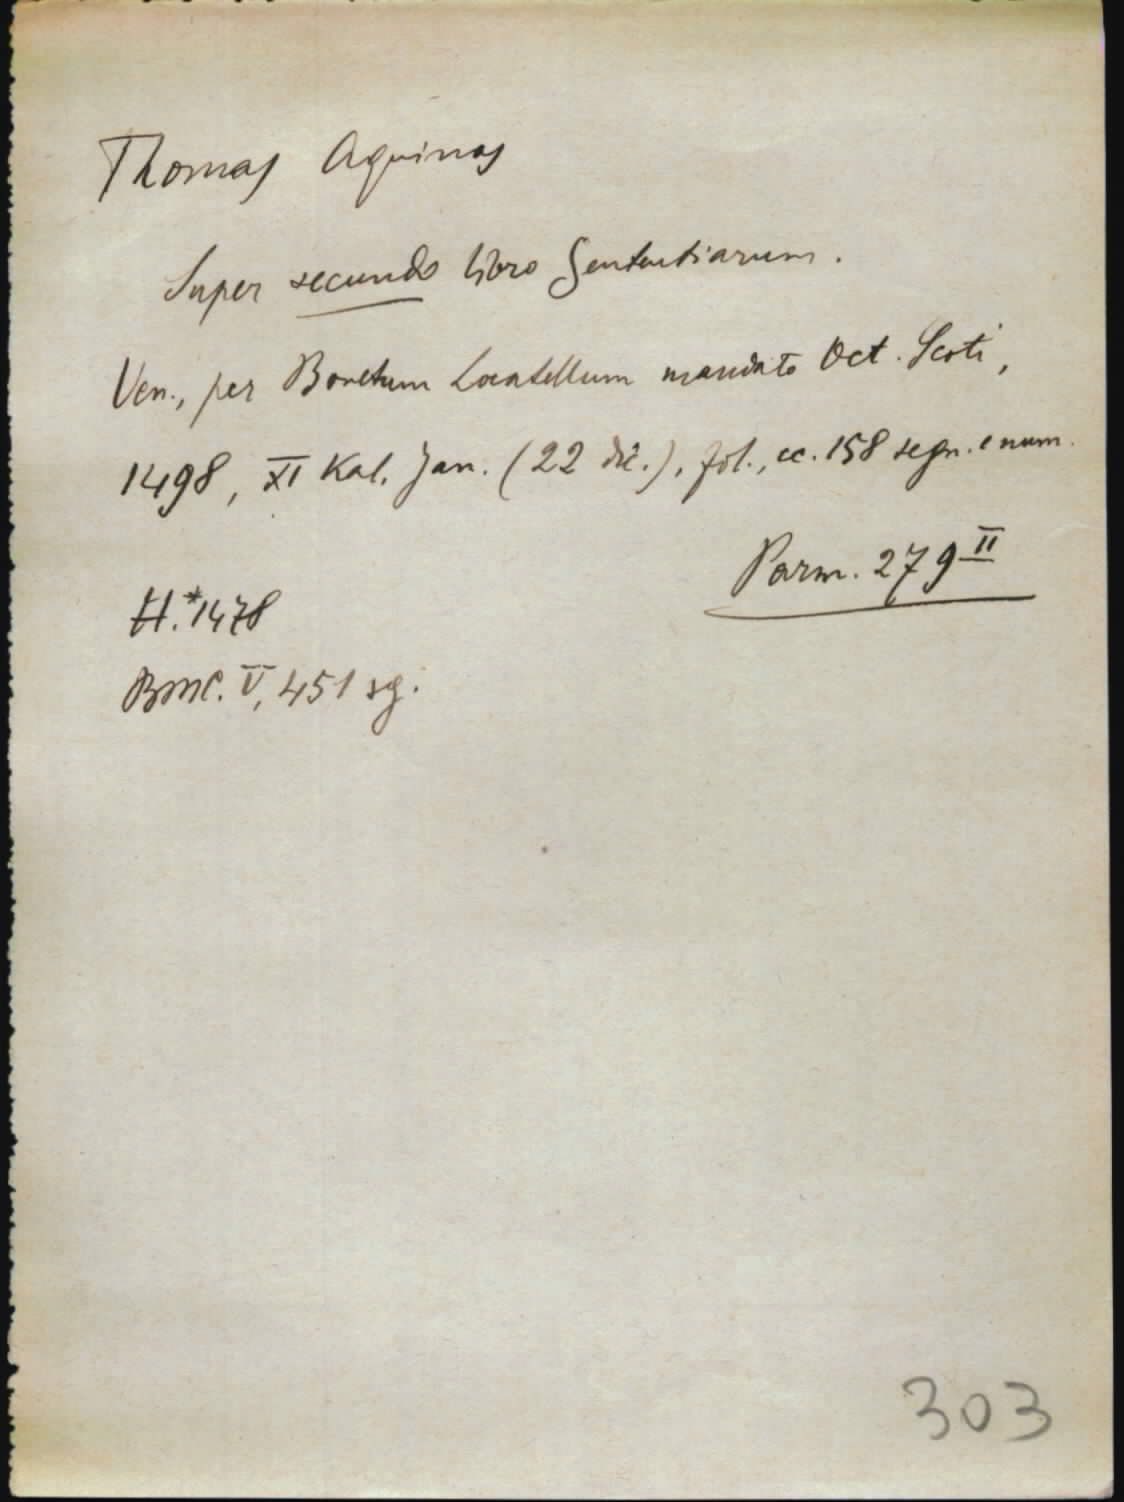 Thomas Aquinas
Super secundo libro Sententiarum.
Ven., per Bonetum Locatellum mandato Oct. Scoti,
1498, XI Kal. Jan. (22 dic.), fol., cc. 158 segn. e num.
Parm. 279 II
H.*1478
BMC. V, 451 sg.
303